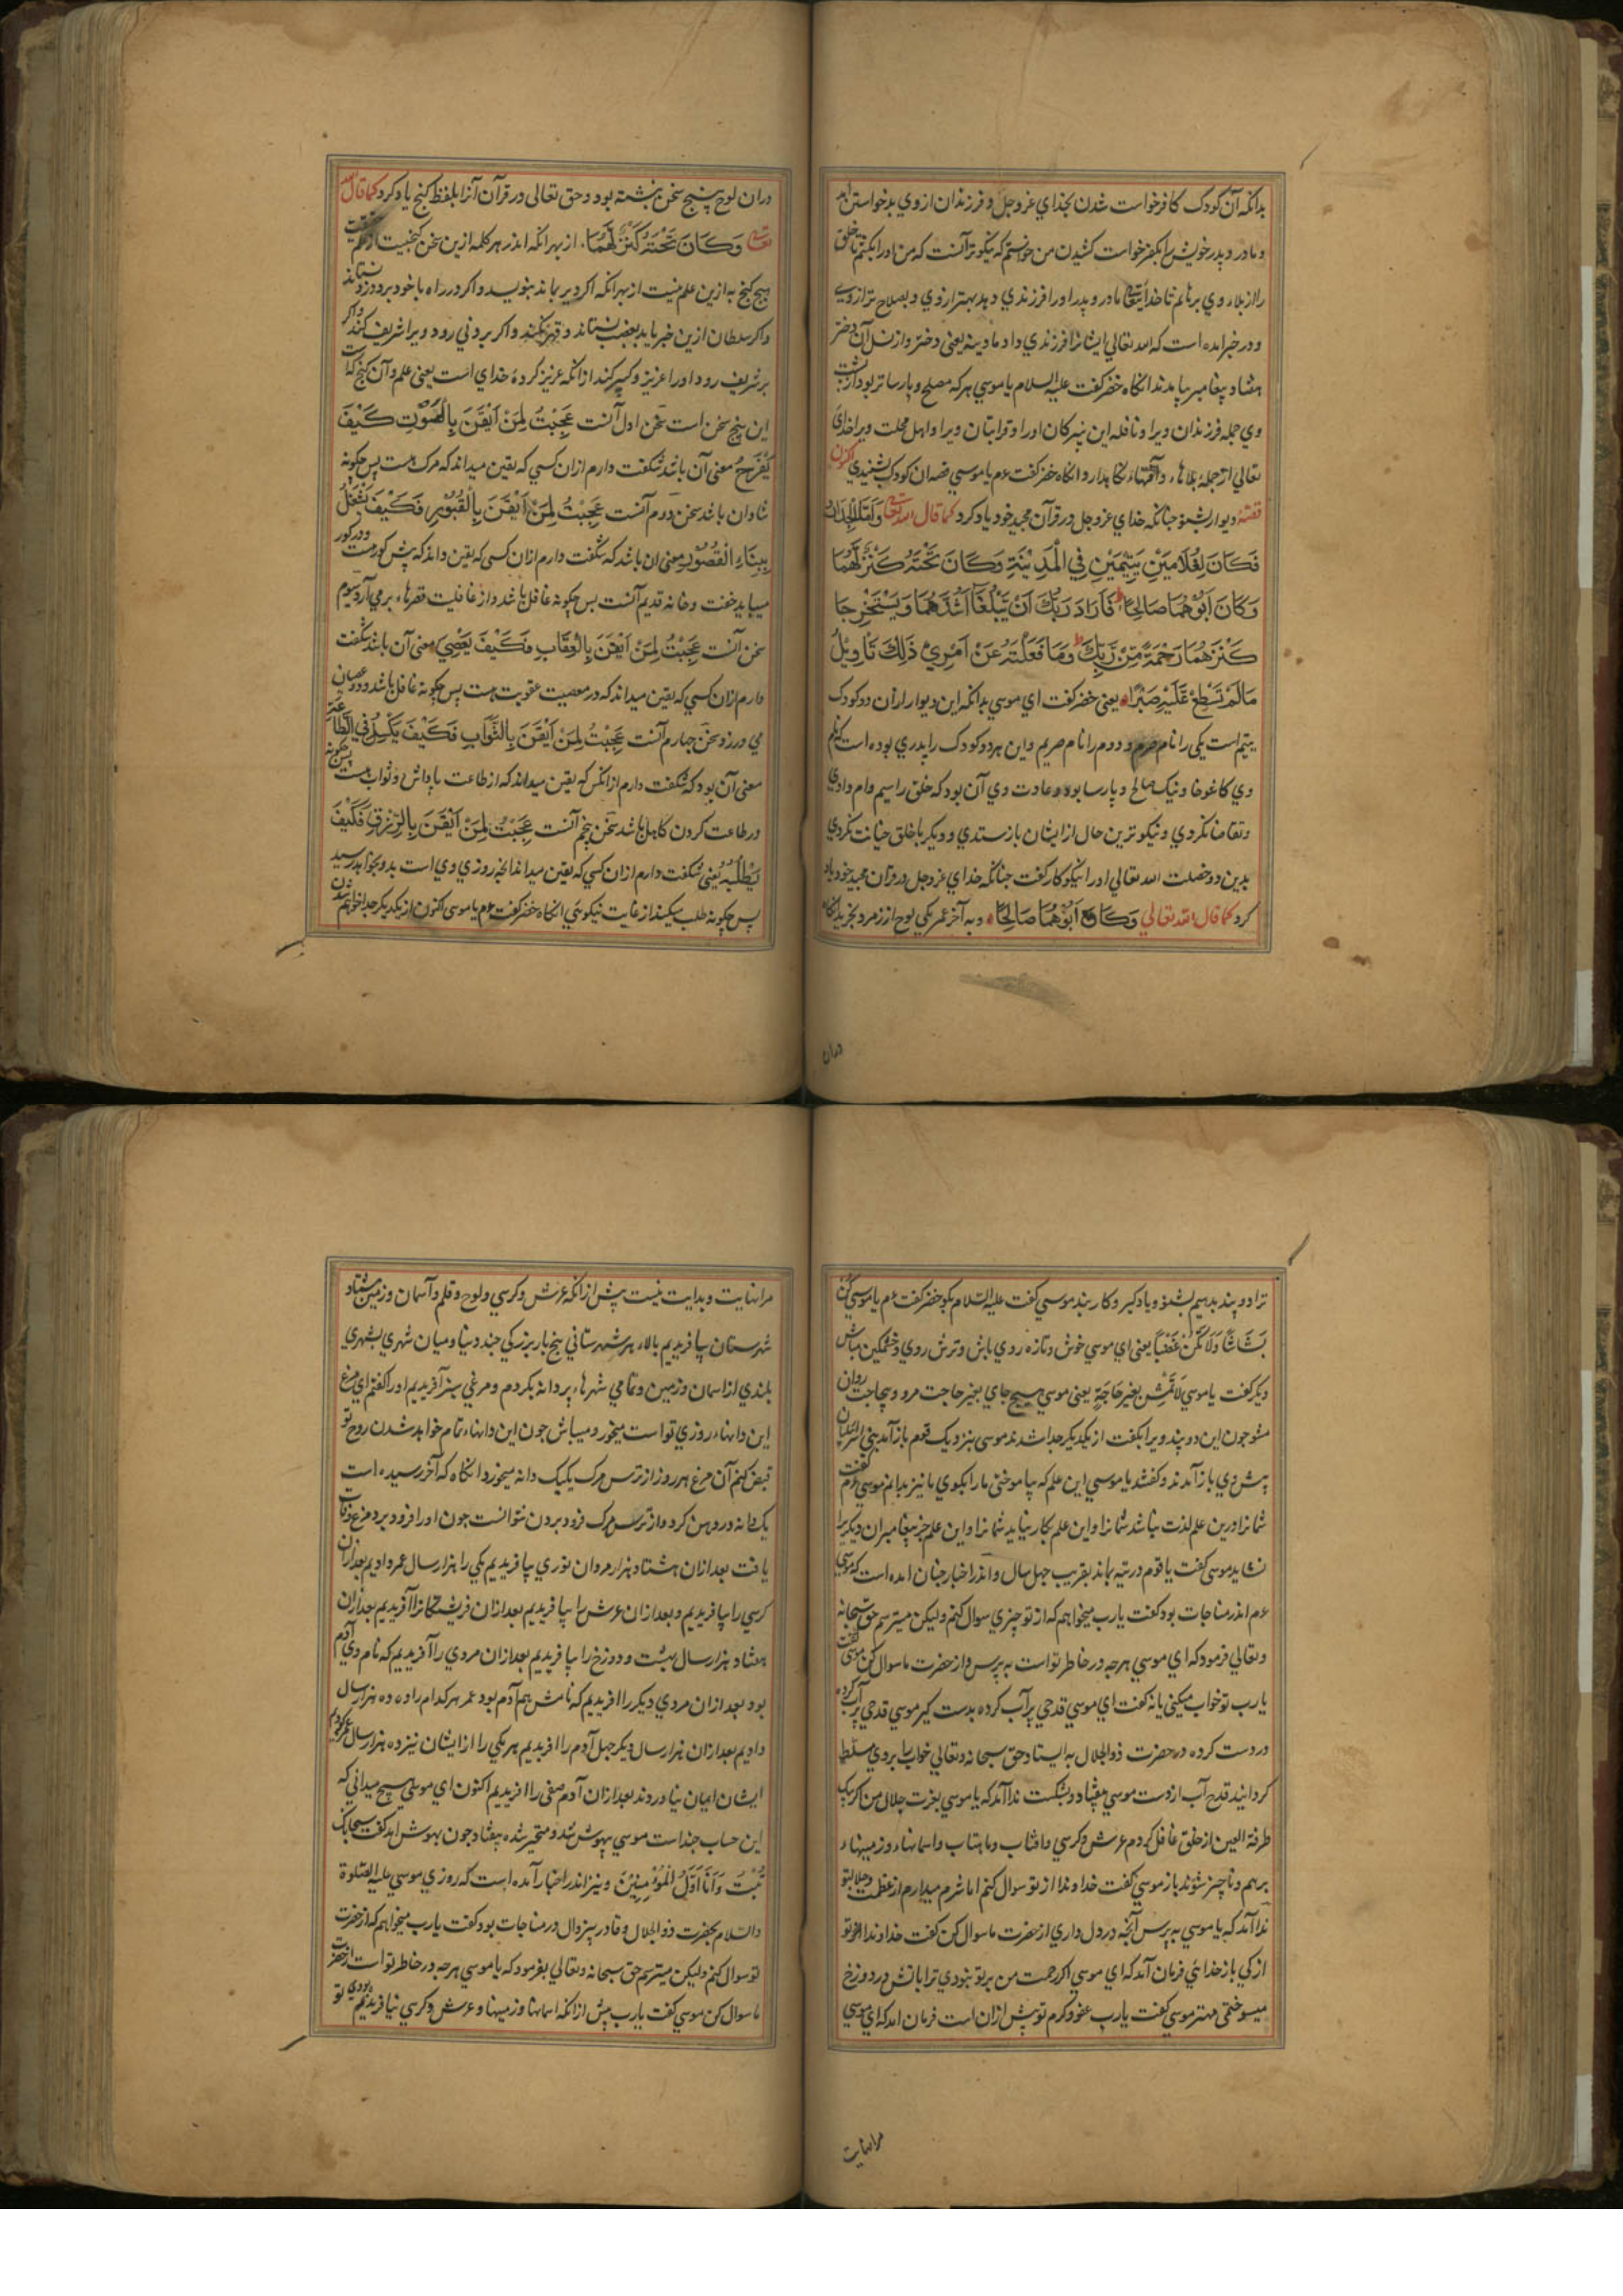 بدانکه آن کودک کافر خواست شدن بخدای عزوجل و فرزندان از وی بد خواستن آمد
و مادر و پدر خویش را بکفر خواست کشیدن من خواستم که نیکوتر آنست که من او را بکشم تا خلق
را از بلاء وی برهانم تا خدای تعالی مادر و پدر او را فرزندی دهد بهتر از وی و بصلاح تر از وی
و در خبر امده است که الله تعالی ایشانرا فرزندی داد مادینه یعنی دختر و از نسل آن دختر
هفتاد پیغامبر پیامدند انگاه خضر گفت علیه السلام یا موسی هر که مصلح و پارسا تر بود از پشت
وی جمله فرزندان ویرا و نافله این نبیرکان اورا و قرابتان ویرا و اهل محلت ویرا خدای
تعالی از جمله بلاها و آفتهاء نکا بدارد و انگاه خضر گفت عم یا موسی قصه ان کودک بشنیدی اکنون
قصهٔ دیوار بشنو جنانکه خدای عزوجل در قرآن مجید خود یاد کرد کما قال الله تعالی وَاَمَّا الْجِدَارُ
فَکَانَ لِغُلَامَیْنِ یَتِیْمَیْنِ فِی الْمَدِیْنَةِ وَکَانَ تَحْتَهُ کَنْزٌ لَّهُمَا
وَکَانَ اَبُوْهُمَا صَالِحًا فَاَرَادَ رَبُّكَ اَنْ یَّبْلُغَا اَشُدَّهُمَا وَیَسْتَخْرِجَا
کَنْزَهُمَا رَحْمَةً مِّنْ رَّبِّكَ وَمَا فَعَلْتُهُ عَنْ اَمْرِیْ ذٰلِكَ تَاْوِیْلُ
مَالَمْ تَسْطِعْ عَلَیْهِ صَبْرًا یعنی خضر گفت ای موسی بدانکه این دیوار ازان دو کودک
یتیم است یکی را نام صرم و دوم را نام صریم و این هر دو کودک را پدری بوده است که نام
وی کاغوخا و نیک صالح و پارسا بوده و عادت وی آن بود که خلق را سیم وام دادی
و تقاضا نکردی و نیکو ترین حال از ایشان باز ستدی و دیگر با خلق خیانت نکردی
بدین دو خصلت الله تعالی اورا نیکوکار گفت جنانکه خدای عزوجل در قرآن مجید خود یاد
کرد کما قال الله تعالی وَکَانَ اَبُوْهُمَا صَالِحًا و به آخر عمر یکی لوح از زمرد بخرید انکاه
دران
دران لوح پنج سخن نبشته بود و حق تعالی در قرآن آنرا بلفظ کنج یاد کرد کما قال الله
تعالی وَکَانَ تَحْتَهُ کَنْزٌ لَّهُمَا از بهر انکه اندر هر کلمه ازین سخن کنجیست از علم
هیج کنج به ازین علم نیست از بهر انکه اگر دیر بماند بنوید و اگر در راه با خود برد دزد نستاند
و اگر سلطان ازین خبر یابد بغصب نستاند و قهر نکند و اگر بر دنی رود ویرا شریف کند و اگر
بر شریف رود اورا عزیز و کبیر کند ازانکه عزیز کردهٔ خدای است یعنی علم و آن کنج که است
این پنج سخن است سخن اول آنست عَجِبْتُ لِمَنْ اَیْقَنَ بِالْمَوْتِ کَیْفَ
یَفْرَحُ معنی آن باشد شکفت دارم ازان کسی که یقین میداند که مرک هست پس چکونه
شادان باشد سخن دوم آنست عَجِبْتُ لِمَنْ اَیْقَنَ بِالْقُبُوْرِ فَکَیْفَ یَشْغَلُ
بِبِنَاءِ الْقُصُوْرِ معنی ان باشد که شکفت دارم ازان کسی که یقین داند که پش کور هست و در کور
میباید خفت و خانه قدیم آنست بس چکونه غافل باشد و از غافلیت قصرهاء بر می آرد سیوم
سخن آنست عَجِبْتُ لِمَنْ اَیْقَنَ بِالْعِقَابِ فَکَیْفَ یَعْصِیْ معنی آن باشد شکفت
دارم ازان کسی که یقین میداند که در معصیت عقوبت هست پس چکونه غافل باشد و عصیان
می ورزد سخن جهارم آنست عَجِبْتُ لِمَنْ اَیْقَنَ بِالثَّوَابِ فَکَیْفَ یَکْسِلُ فِی الطَّاعَةِ
معنی آن بود که شکفت دارم ازانکس که یقین میداند که از طاعت پاداش و ثواب هست پس چکونه
در طاعت کردن کاهل باشد سخن پنجم آنست عَجِبْتُ لِمَنْ اَیْقَنَ بِالرِّزْقِ فَکَیْفَ
یَطْلُبُهُ یعنی شکفت دارم ازان کسی که یقین میداند انچه روزی وی است بدو بخواهد رسید
پس چکونه طلب میکند از غایت نیکویی انکاه خضر گفت عم یا موسی اکنون از یکدیکر جدا خواهیم شدن
ترا دو پند بدهیم بشنو و یاد گیر و کار بند موسی گفت علیه السلام بگو خضر گفت عم یا موسی کُنْ
بَشَّاشًا وَلَا تَکُنْ غَضَبًا یعنی ای موسی خوش و تازه روی باش و ترش روی و خشمکین مباش
دیگر گفت یا موسی لَا تَمْشِ بِغَیْرِ حَاجَةٍ یعنی موسی هیچ جای بغیر حاجت مرو و بیحاجت روان
مشو جون این دو پند ویرا بگفت از یکدیکر جدا شدند موسی بنزدیک قوم باز آمد بنی اسرائیلیان
پش وی باز آمدند و گفتند یا موسی این علم که پیاموختی مارا بکوی تا نیز بدانم موسی عم گفت
شمارا درین علم لذت نباشد شمارا و این علم بکار نیاید شمارا و این علم جز پیغامبران دیکررا
نشاید موسی گفت یا قوم در تیه بماند بقریب جهل سال و اندر اخبار جنان امده است که موسی
عم اندر مناجات بود گفت یارب میخواهم که از تو چیزی سوال کنم ولیکن میترسم حق سبحانه
و تعالی فرمود که ای موسی هرچه در خاطر تو است به پرس و از حضرت ما سوال کن موسی گفت
یارب تو خواب میکنی یا نه گفت ای موسی قدحی پر آب کرده بدست گیر موسی قدحی پر آب کرده
در دست کرده در حضرت ذوالجلال به ایستاد حق سبحانه و تعالی خواب را بر وی مسلط
گردانید قدح آب از دست موسی بیفتاد و بشکست ندا آمد که یا موسی بعزت جلال من اگر یک
طرفة العین از خلق غافل گردم عرش و کرسی و افتاب و ماهتاب و اسمانهاء و زمینهاء
برهم و ناچیز شوند باز موسی گفت خداوندا از تو سوال کنم اما شرم میدارم از عظمت و جلال تو
ندا آمد که یا موسی به پرس آنچه در دل داری از حضرت ما سوال کن گفت خداوندا اگر تو
از کی باز خدایی فرمان آمد که ای موسی اگر رحمت من بر تو نبودی ترا باتش دوزخ
میسوختمی مهتر موسی گفت یارب عفو و کرم تو پش ازان است فرمان امد که ای موسی
مرا نهایت
مرا نهایت و بدایت نیست پش ازانکه عرش و کرسی و لوح و قلم و آسمان و زمین هشتاد
شهرستان بیافریدیم بالاء هر شهرستانی پنج بار بزرگی جند دنیا و میان شهری بشهری
بلندی از اسمان و زمین و تمامی شهرهاء پر دانه بکردم و مرغی سبز آفریدیم اورا کفتم ای مرغ
این دانهاء روزی تو است میخور و میباش جون این دانهاء تمام خواهد شدن روح تو
قبض کنم آن مرغ هر روز از ترس مرک یکیک دانه میخورد انکاه که آخر رسیده است
یک دانه در دهن کرد و از ترس مرک فرو بردن نتوانست جون اورا فرو برد مرغ وفات
یافت بعد ازان هشتاد هزار مردان نوری پیافریدیم یکی را هزار سال عمر دادیم بعد ازان
کرسی را پیافریدیم و بعد ازان عرش را پیافریدیم بعد ازان فرشتکانرا آفریدیم بعد ازان
هفتاد هزار سال بهشت و دوزخ را پیافریدیم بعد ازان مردی را آفریدیم که نام وی آدم
بود بعد ازان مردی دیگر را افریدیم که نامش هم آدم بود عمر هر کدام را ده ده هزار سال
دادیم بعد ازان هزار سال دیگر جهل آدم را افریدیم هر یکی را از ایشان نیز ده هزار سال عمر
ایشان ایمان نیاوردند بعد ازان آدم صفی را افریدیم اکنون ای موسی هیچ میدانی که
این حساب جند است موسی بیهوش شد و متحیر شده بیفتاد جون بهوش امد گفت سبحانک
تُبْتُ وَاَنَا اَوَّلُ الْمُؤْمِنِیْنَ و نیز اندر اخبار آمده است که روزی موسی علیه الصلوة
والسلام بحضرت ذوالجلال و قادر بیزوال در مناجات بود گفت یارب میخواهم که از حضرت
تو سوال کنم ولیکن میترسم حق سبحانه و تعالی بفرمود که یا موسی هرچه در خاطر تو است از حضرت
ما سوال کن موسی گفت یارب پش ازانکه اسمانها و زمینها و عرش و کرسی نیافریدیم بودی تو